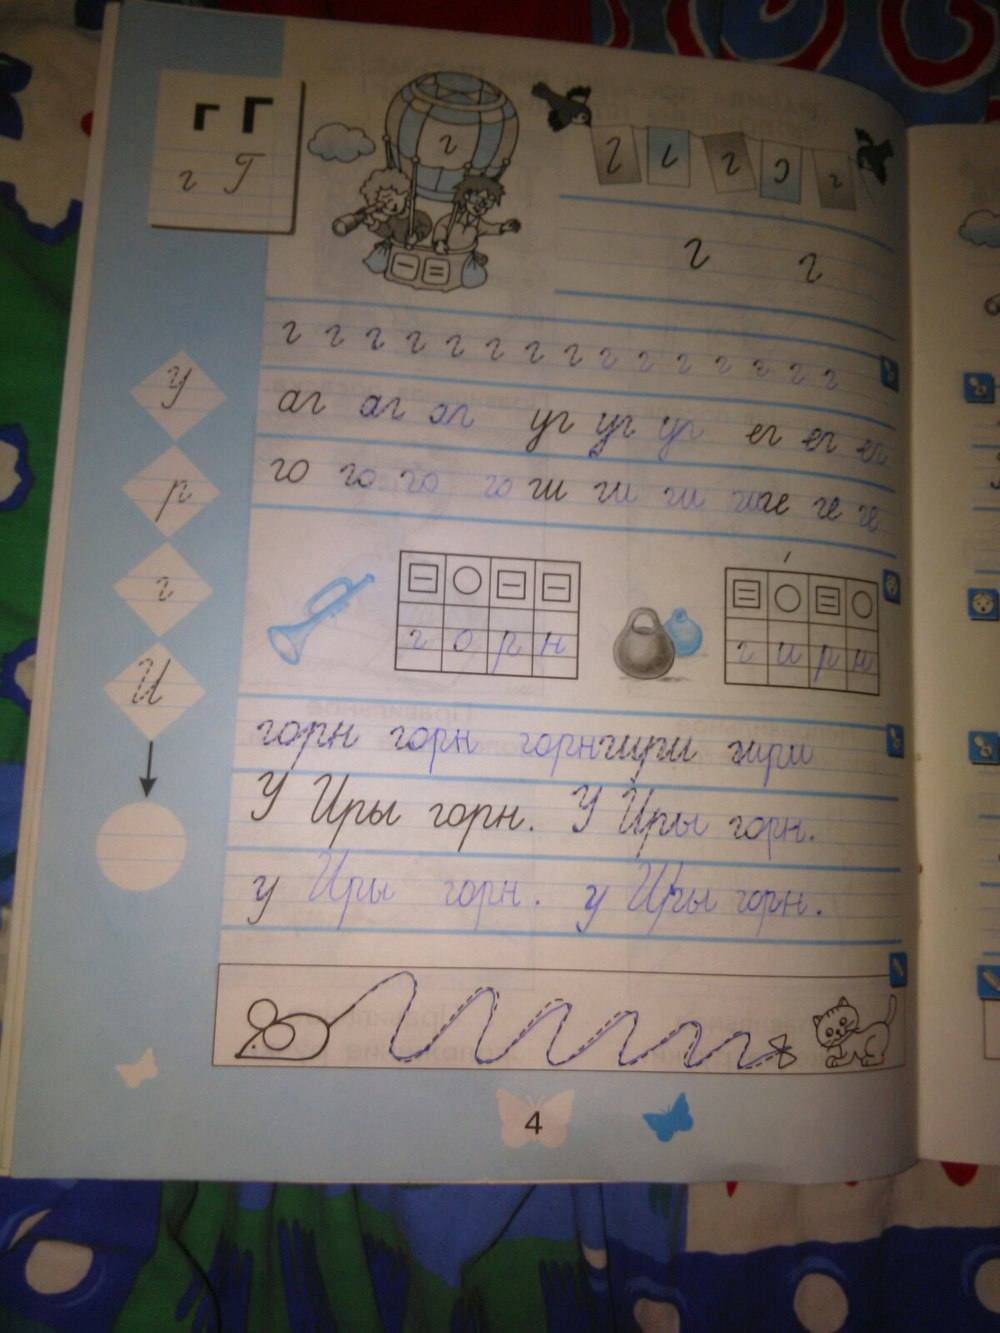 г Г
г Г
г
г г г г г
г г
г г г г г г г г г г г г г г г
аг аг аг уг уг уг ег ег ег
го го го го ги ги ги ги ге ге ге
У
р
г
И
г о р н
г и р и
горн горн горн гири гири
У Иры горн. У Иры горн.
у Иры горн. у Иры горн.
4